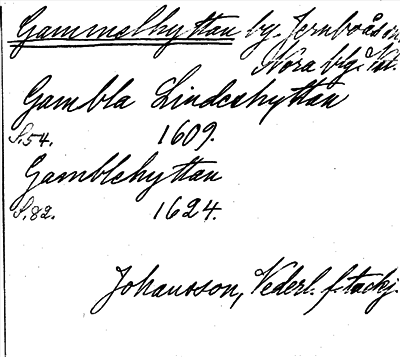 Gammelhyttan by, Jernboås sn
Nora blg. Vstm.
Gambla Lindeshyttan
S.54. 1609.
Gamblehyttan
S.82. 1624.
Johansson, Vederl. f. tackj.